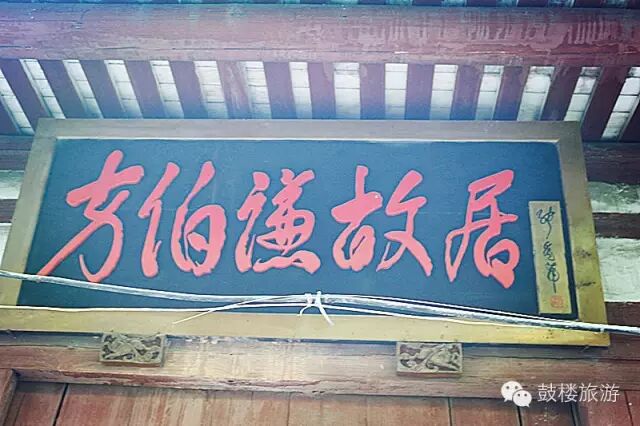 方伯谦故居
鼓楼旅游